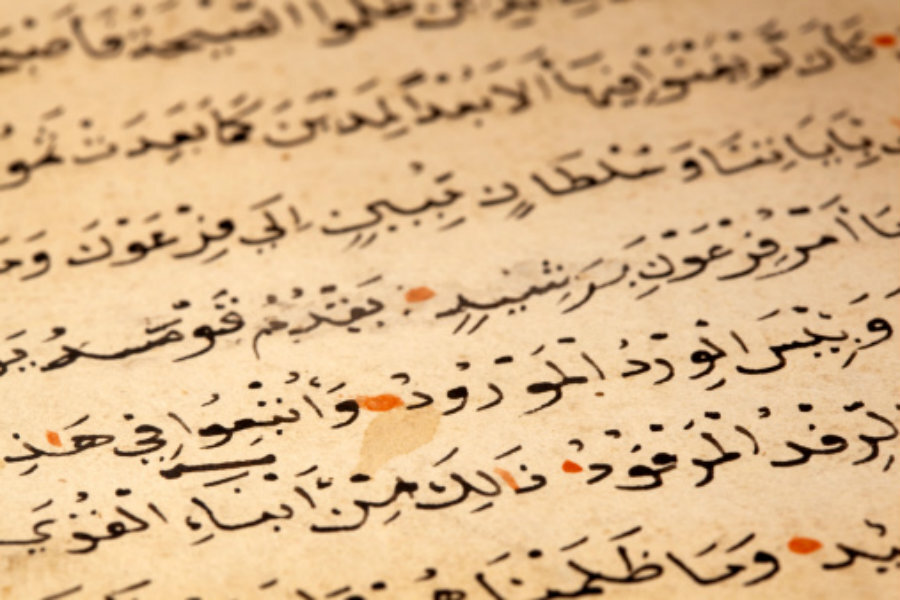 ظَلَمُوا الصَّيْحَةُ
كَأَن لَّمْ يَغْنَوْا فِيهَا أَلَا بُعْدًا لِّمَدْيَنَ كَمَا بَعِدَتْ
بِآيَاتِنَا وَسُلْطَانٍ مُّبِينٍ إِلَى فِرْعَوْنَ
أَمْرُ فِرْعَوْنَ بِرَشِيدٍ يَقْدُمُ قَوْمَهُ
وَبِئْسَ الْوِرْدُ الْمَوْرُودُ وَأُتْبِعُوا فِي هَذِهِ
الرِّفْدُ الْمَرْفُودُ ذَلِكَ مِنْ أَنْبَاءِ الْقُرَى
وَمَا ظَلَمْنَا